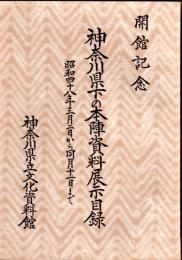 開館記念
神奈川県下の本陣資料展示目録
昭和四十八年十一月一日から同月十一日まで
神奈川県立文化資料館